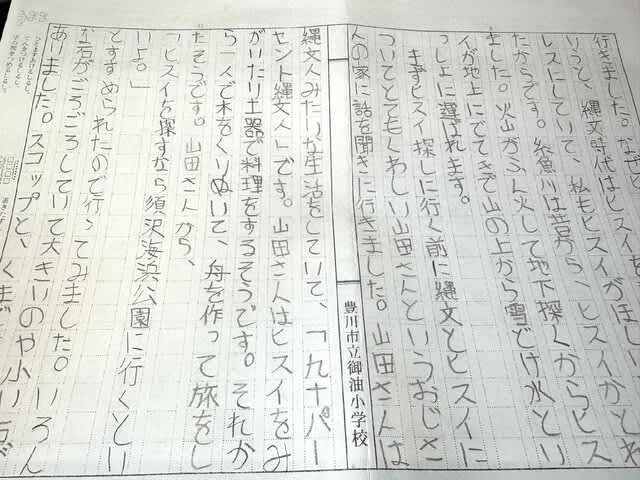 行きました。なぜ
いうと、縄文時代はヒスイを
レスにしていて、私もヒスイがほし
たからです。糸魚川は昔から、ヒスイがとれ
ました。火山がふん火して地下深くからヒス
イが地上にでてきて山の上から雪どけ水とい
っしょに運ばれます。
まずヒスイ探しに行く前に縄文とヒスイに
ついてとてもくわしい山田さんというおじさ
んの家に話を聞きに行きました。山田さんは
豊川市立御油小学校
縄文人みたいな生活をしていて、「九十パー
セント縄文人」です。山田さんはヒスイをみ
がいたり土器で料理をするそうです。それか
ら一人で木をくりぬいて、舟を作って旅をし
たそうです。山田さんから、
「ヒスイを探すなら須沢海浜公園に行くとい
いよ。」
とすすめられたので行ってみました。いろん
な石がごろごろしていて大きいのや小いさ
ありました。スコップと、くま